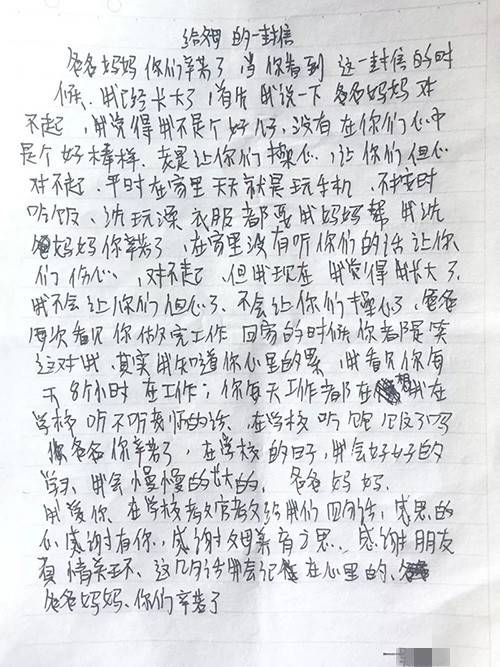 给父母的一封信
爸爸妈妈你们辛苦了 当你看到 这一封信的时
候、我已经长大了,首先我说一下爸爸妈妈对
不起,我觉得我不是个好儿子,没有在你们心中
是个好榜样、老是让你们操心,让你们但心
对不起、平时在家里天天就是玩手机、不按时
吃饭、洗玩澡衣服都要我妈妈帮我洗
妈妈你辛苦了,在家里没有听你们的话让你
们伤心,对不起、但我现在我觉得我长大了、
我不会让你们但心了、不会让你们操心了、爸爸
每次看见你做完工作回家的时候你都是笑
这对我、其实我知道你心里的累、我看见你每
天8个小时在工作;你每天工作都在想我在
学校听不听教师的话、在学校听 了吗
爸爸你辛苦了,在学校的日子,我会好好的
学习、我会慢慢的长大的、爸爸妈妈、
我爱你、在学校教官教给我们四句话,感恩的
心,感谢有你、感谢父母养育之恩、感谢朋友
有情关怀、这几句话我会记在心里的、
爸爸妈妈、你们辛苦了